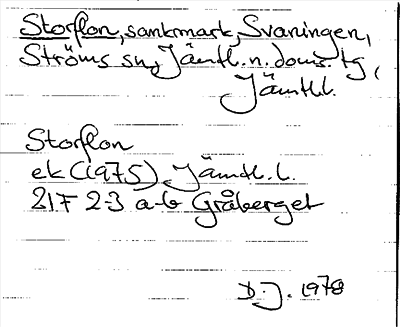 Storflon, sankmark, Svaningen,
Ströms sn, Jämtl. n. doms. tg,
Jämtl.l.
Storflon
ek (1975), Jämtl. l.
21F 2-3 a-b Gråberget
D.J. 1978